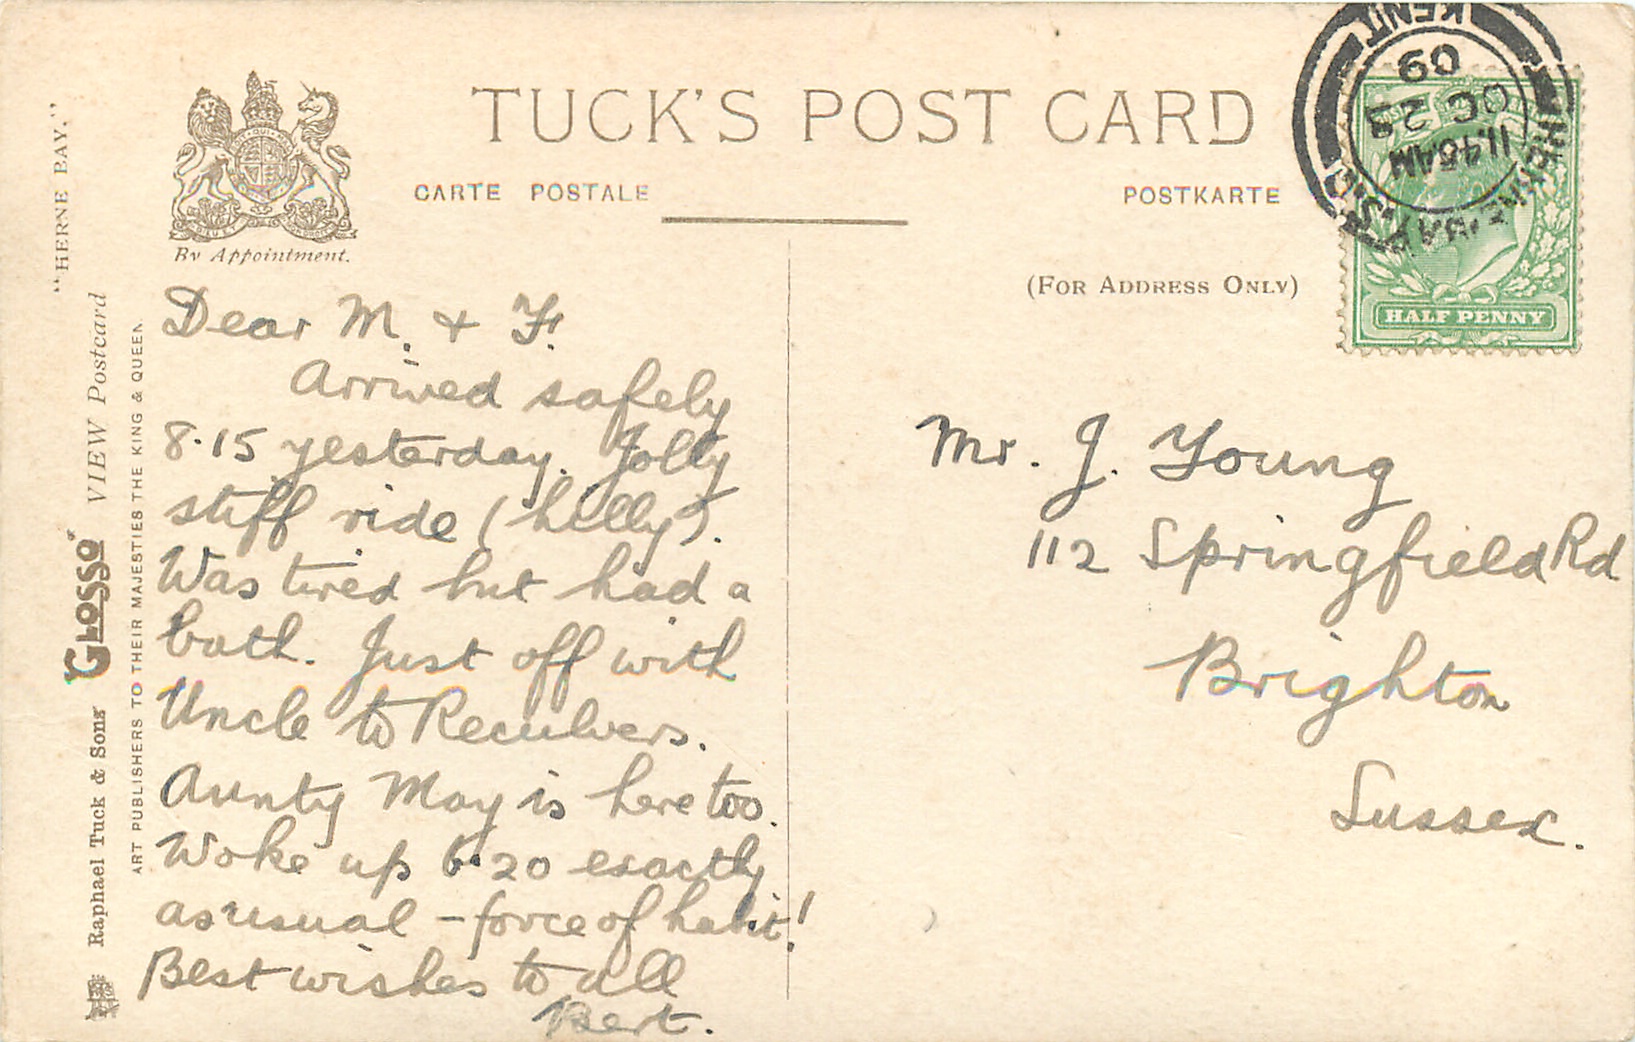 TUCK'S POST CARD
CARTE POSTALE
POSTKARTE
By Appointment.
(FOR ADDRESS ONLY)
"HERNE BAY."
Raphael Tuck & Sons' GLOSSO VIEW Postcard
ART PUBLISHERS TO THEIR MAJESTIES THE KING & QUEEN.
KENT
09
OC 23
11.45AM
HALF PENNY
Dear M. & F.
Arrived safely
8.15 yesterday. Jolly
stiff ride (hilly).
Was tired but had a
bath. Just off with
Uncle to Reculvers.
Aunty May is here too.
Woke up 6.20 exactly
as usual – force of habit!
Best wishes to all
Bert.
Mr. J. Young
112 Springfield Rd
Brighton
Sussex.